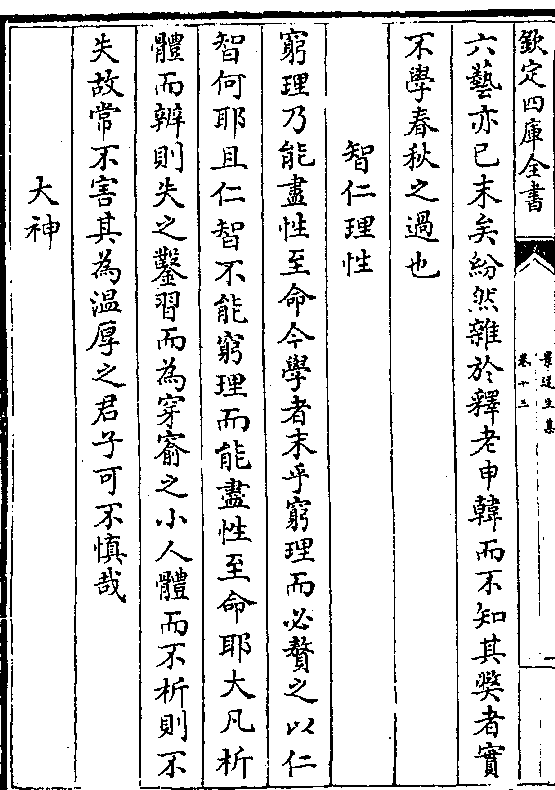 欽定四庫全書
景迂生集
卷十三
六藝亦已末矣紛然雜於釋老申韓而不知其獘者實
不學春秋之過也
智仁理性
窮理乃能盡性至命今學者末乎窮理而必贅之以仁
智何耶且仁智不能窮理而能盡性至命耶大凡析
體而辨則失之鑿習而為穿窬之小人體而不析則不
失故常不害其為温厚之君子可不慎哉
大神